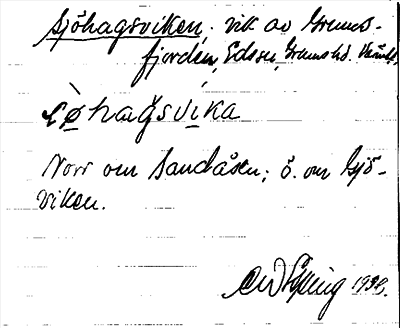 Sjöhagsviken, vik av Grums-
fjorden, Edssn, Grums hd. Värml.
søhagsvika
Norr om Sandåsen; ö. om Sjö-
viken.
1938.